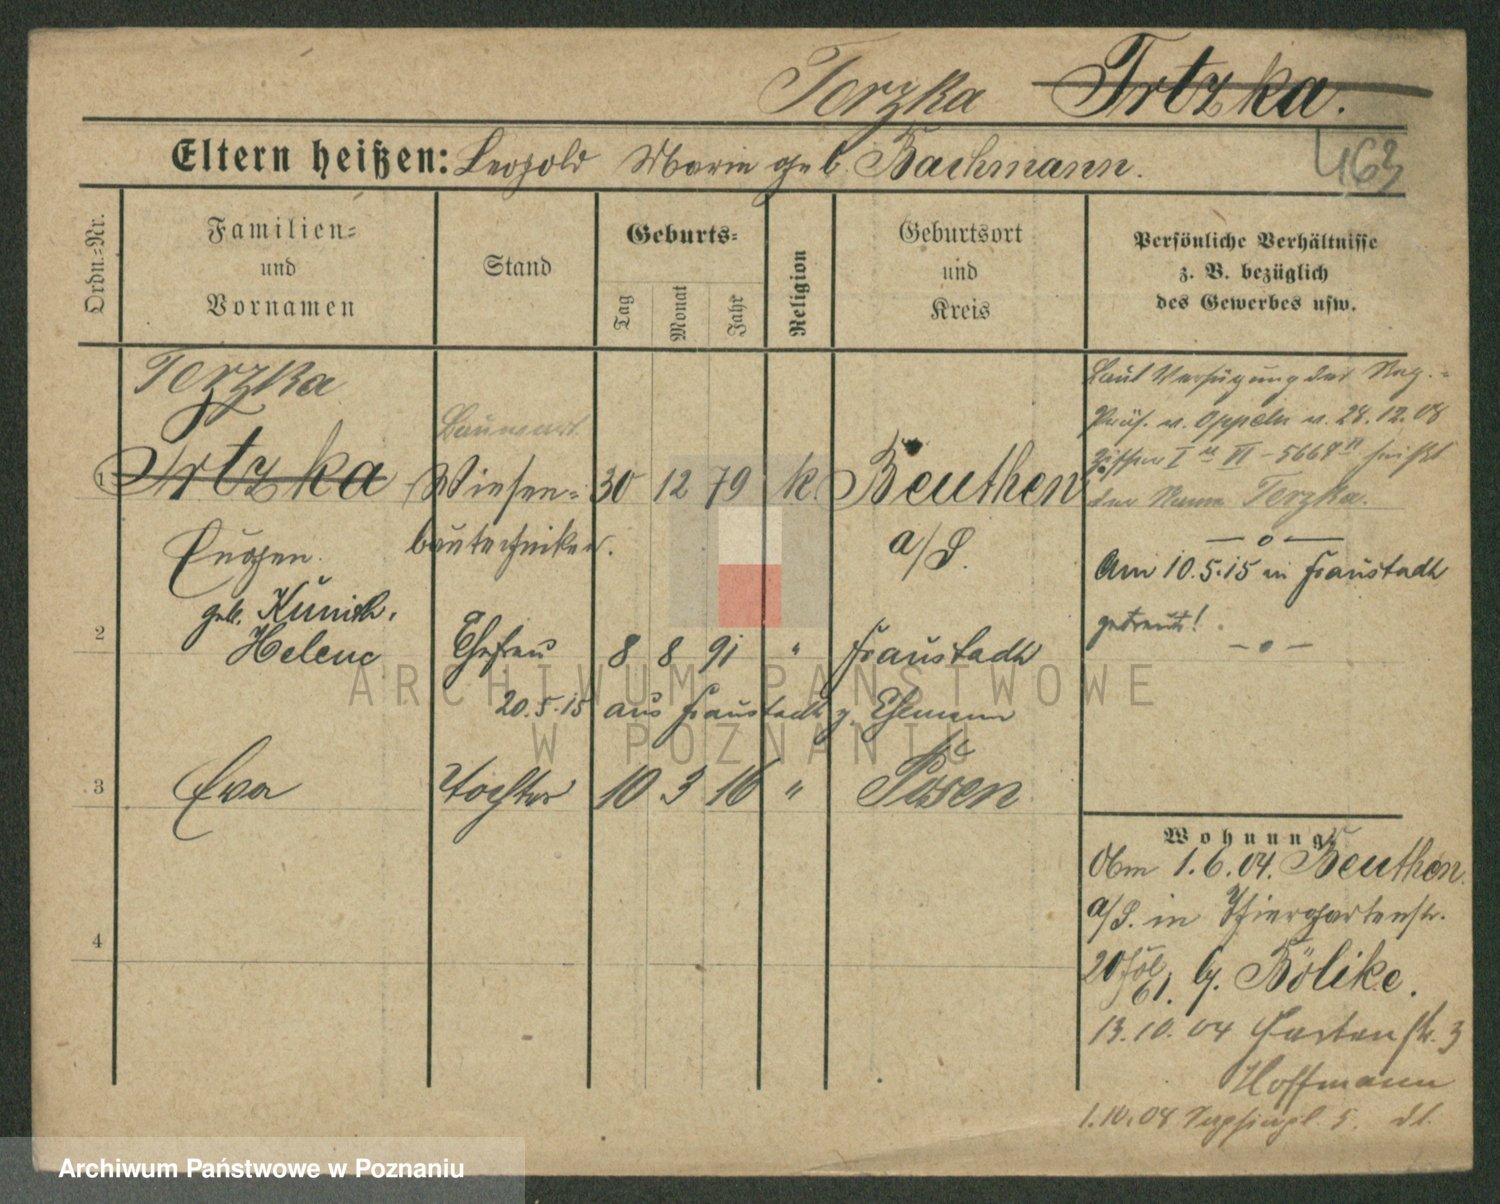 Terzka Trtzka.
Eltern heißen: Leopold Marie geb. Bachmann.
463
Ordn.=Nr.
Familien=
und
Vornamen
Stand
Geburts=
Tag
Monat
Jahr
Religion
Geburtsort
und
Kreis
Persönliche Verhältnisse
z. B. bezüglich
des Gewerbes usw.
Terzka
1 Trtzka Wiesen= 30 12 79 k. Beuthen
Eugen. bautechniker. a/S.
geb. Kunich,
2 Helene Ehefrau 8 8 91 " Fraustadt
20.5.15 aus Fraustadt z. Ehemann
3 Eva Tochter 10 3 16 " Posen
4
Laut Verfügung des Reg.=
Präs. v. Oppeln v. 28.12.08
I VI - 5667 heißt
der Name Terzka.
— o —
Am 10.5.15 in Fraustadt
getraut!
— o —
Wohnung
1.6.04. Beuthen
a/S. in Thiergartenstr.
20 61. b. Bölike.
13.10.04 Gartenstr. 3
Hoffmann
1.10.08 5.
ARCHIWUM PAŃSTWOWE
W POZNANIU
Archiwum Państwowe w Poznaniu